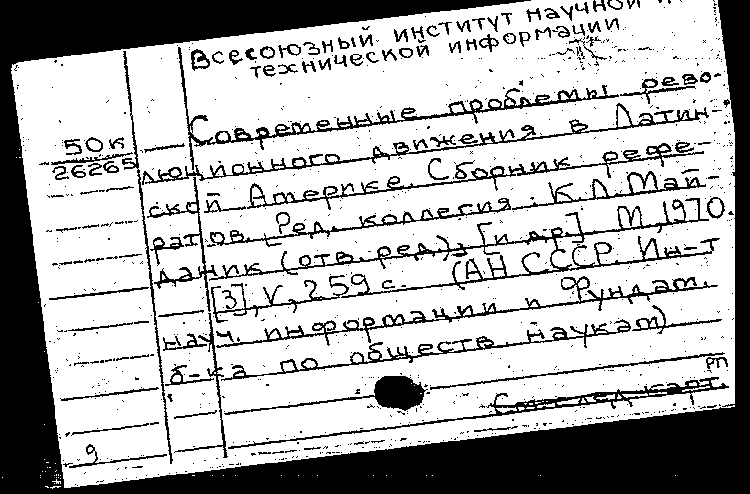 Всесоюзный институт научной и
технической информации
Современные проблемы рево-
50к
26265
люционного движения в Латин-
ской Америке. Сборник рефе-
ратов. [Ред. коллегия: К.Л. Май-
даник (отв. ред), [и др.]. М, 1970.
[3], V, 259 с. (АН СССР. Ин-т
науч. информации и Фундам.
б-ка по обществ. наукам)
РП
См. след. карт.
9